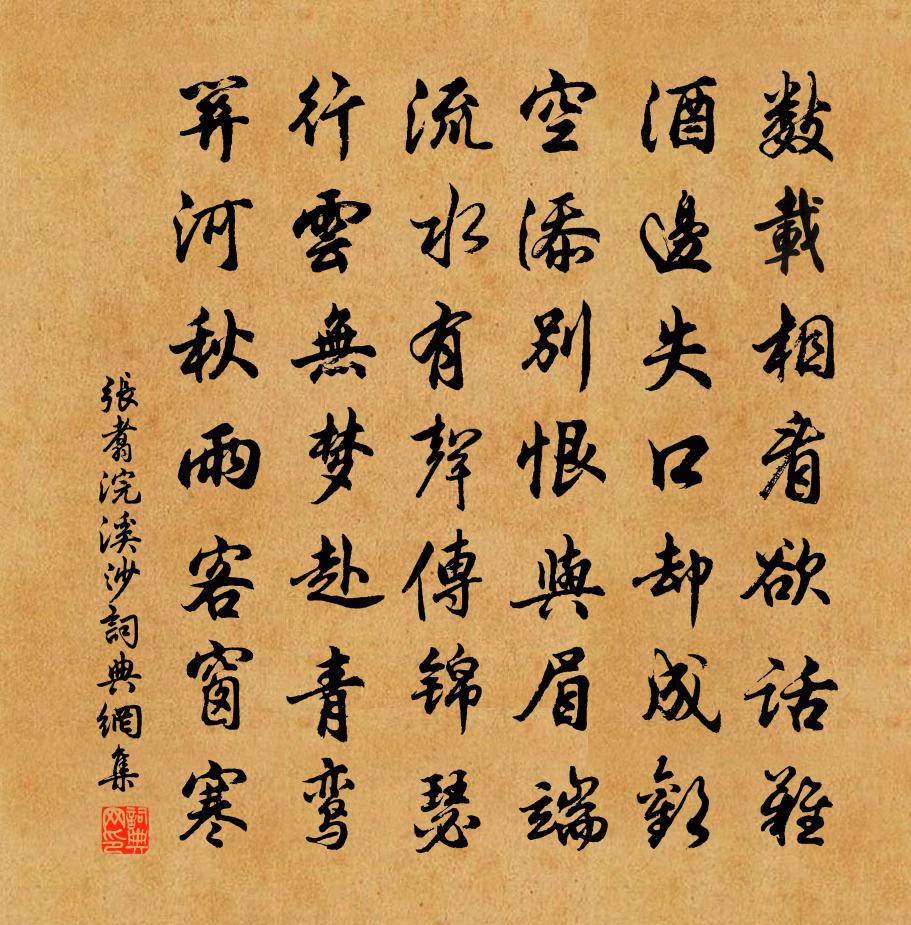 数載相看欲話難
酒邊失口却成歡
空添別恨與眉端
流水有聲傳錦瑟
行雲無梦赴青鸾
關河秋雨客窗寒
張翥浣溪沙詞典網集
詞典网印